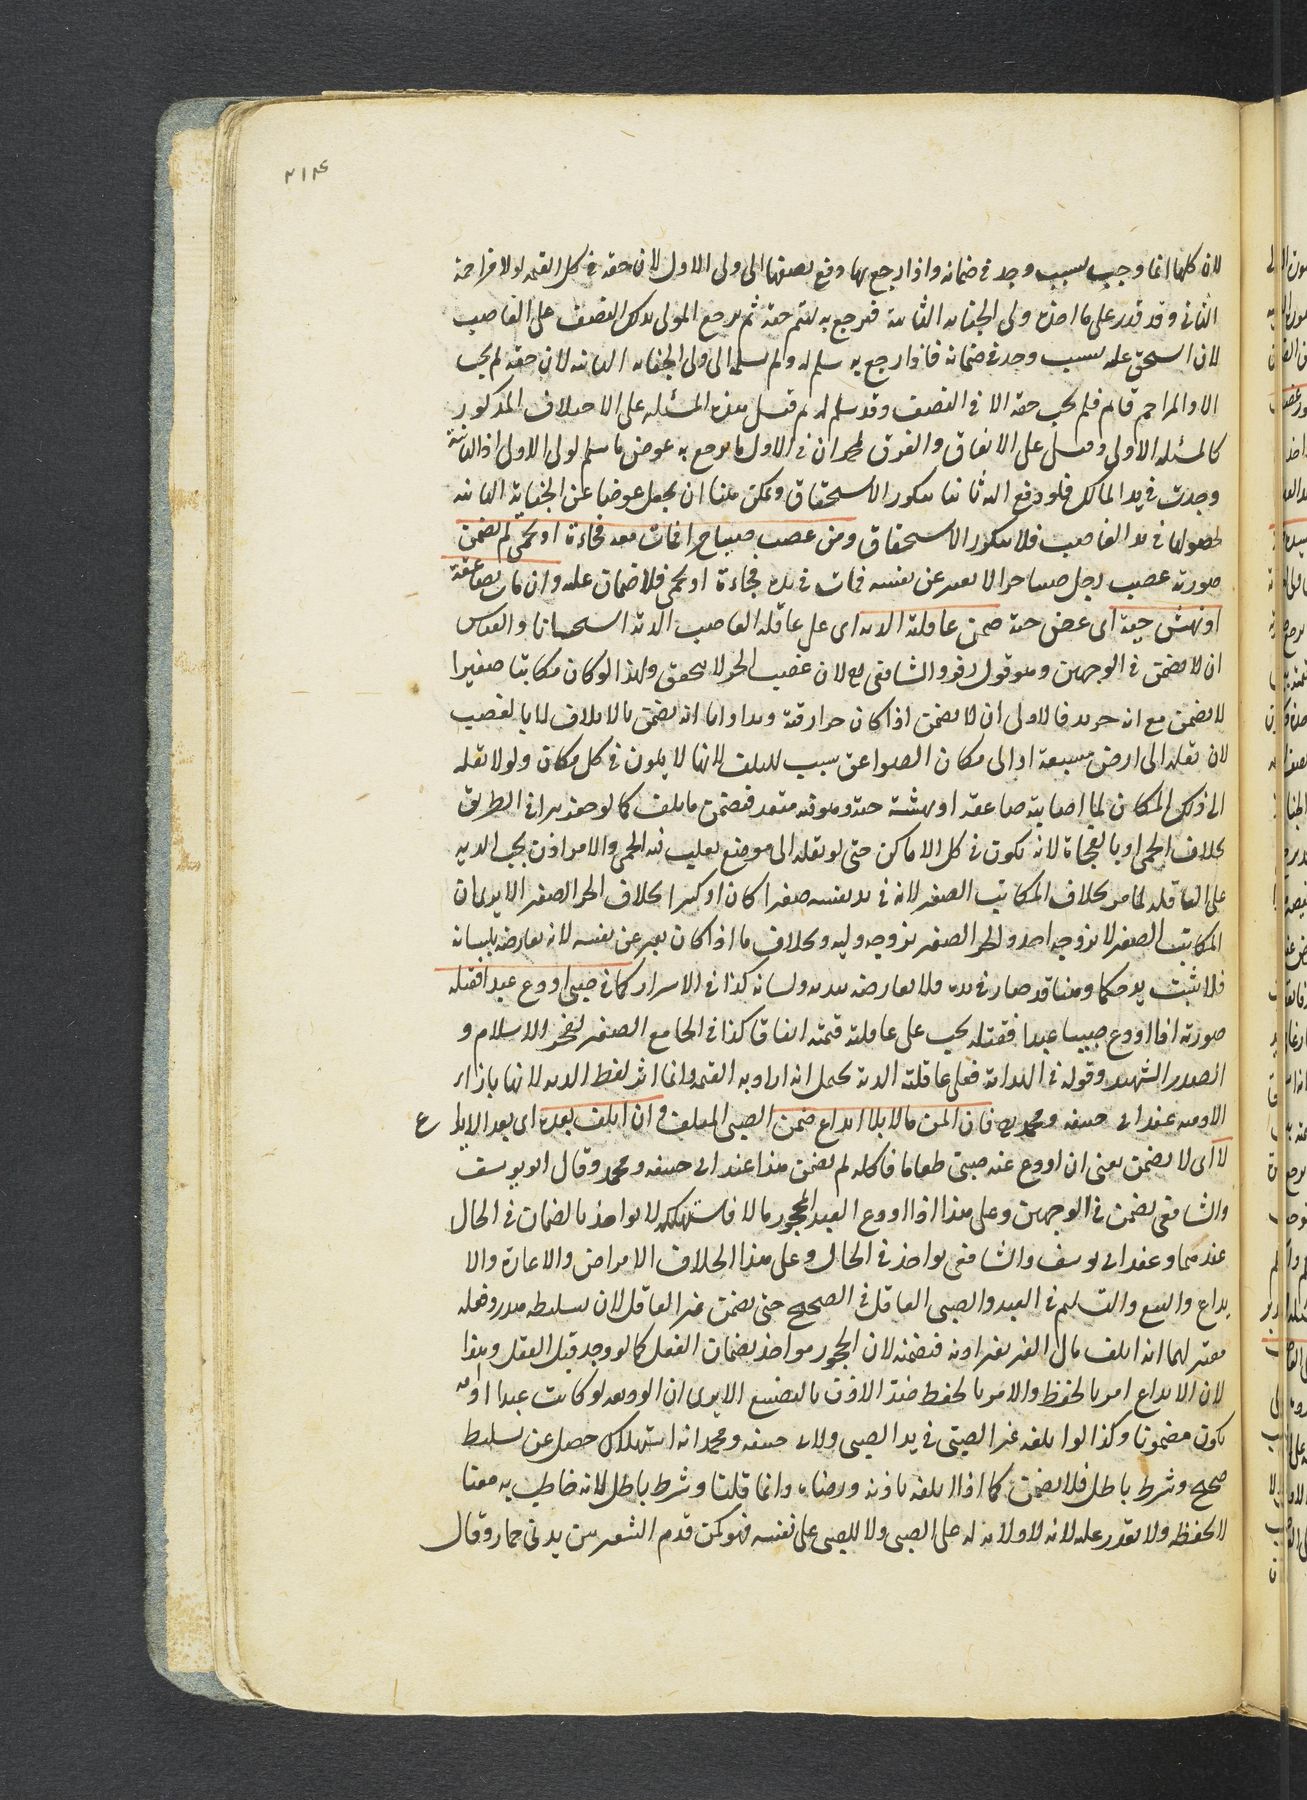 ٢١۴
لان كلها انما وجب بسبب وجد في ضمانه واذا رجع بها دفع نصفها الى ولي الاول لان حقه في كل القيمة لولا مزاحمة
الثاني وقد قدر على ما اخذه ولي الجناية الثانية فيرجع به ليتم حقه ثم يرجع المولى بذلك النصف على الغاصب
لان استحق عليه بسبب وجد في ضمانه فاذا رجع به سلم له ولم يسلمه الى ولي الجناية الثانية لان حقه لم يجب
الا والمزاحم قائم فلم يجب حقه الا في النصف وقد سلم له ثم قيل هذه المسئلة على الاختلاف المذكور
كالمسئلة الاولى وقيل على الاتفاق والفرق لمحمد ان في الاول ما يرجع به عوض ما سلم لولي الاولى اذ الثانية
وجدت في يد المالك فلو دفع اليه ثانيا يتكرر الاستحقاق ويمكن هنا ان يجعل عوضا عن الجناية الثانية
لحصولها في يد الغاصب فلا يتكرر الاستحقاق ومن غصب صبيا حرا فمات معه فجاءة او بحمى لم يضمن
صورته غصب رجل صبيا حرا لا يعبر عن نفسه فمات في يده فجاءة او بحمى فلا ضمان عليه وان مات بصاعقة
او نهش حية اى عض حية ضمن عاقلته الدية اى على عاقلة الغاصب الدية استحسانا والقياس
ان لا يضمن في الوجهين وهو قول زفر والشافعي رح لان غصب الحر لا يتحقق ولهذا لو كان مكاتبا صغيرا
لا يضمن مع انه حر يدا فالاولى ان لا يضمن اذا كان حرا رقبة ويدا ولنا انه يضمن بالاتلاف لا بالغصب
لان نقله الى ارض مسبعة او الى مكان الصواعق سبب للتلف لانها لا يكون في كل مكان ولولا نقله
الى ذلك المكان لما اصابته صاعقة او نهشته حية وهو فيه متعد فيضمن ما تلف كما لو حفر بيرا في الطريق
بخلاف الحمى او بالفجاة لانه يكون في كل الاماكن حتى لو نقله الى موضع يغلب فيه الحمى والامراض يجب الدية
على العاقلة لما مر بخلاف المكاتب الصغير لانه في يد نفسه صغيرا كان او كبيرا بخلاف الحر الصغير الا يرى ان
المكاتب الصغير لا يزوجه احد والحر الصغير يزوجه وليه وبخلاف ما اذا كان يعبر عن نفسه لانه يعارضه بلسانه
فلا تثبت يده حكما وهنا قد صار في يده بلا معارضة بيده ولسانه كذا في الاسرار كما في صبي اودع عبدا فقتله
صورته اذا اودع صبيا عبدا فقتله يجب على عاقلته قيمته اتفاقا كذا في الجامع الصغير لفخر الاسلام و
الصدر الشهيد وقوله في الهداية فعلى عاقلته الدية يحتمل انه اراد به القيمة وانما اثر لفظ الدية لانها بازاء
الادمية عند ابي حنيفة ومحمد رح فان اتلف مالا بلا ايداع ضمن الصبي المتلف وان اتلف بعده اى بعد الايداع
لا اى لا يضمن يعنى ان اودع عند صبي طعاما فاكله لم يضمن هذا عند ابي حنيفة ومحمد وقال ابو يوسف
والشافعي يضمن في الوجهين وعلى هذا اذا اودع العبد المحجور مالا فاستهلكه لا يواخذ بالضمان في الحال
عندهما وعند ابي يوسف والشافعي يواخذ في الحال وعلى هذا الخلاف الاقراض والاعارة والا
يداع والبيع والتسليم في العبد والصبي العاقل في الصحيح حتى يضمن غير العاقل لان تسليطه هدر وفعله
معتبر لهما انه اتلف مال الغير بغير اذنه فيضمنه لان المحجور مواخذ بضمان الفعل كما لو وجد قبل العقد وهذا
لان الايداع امر بالحفظ والامر بالحفظ ضد الاذن بالتضييع الا يرى ان الوديعة لو كانت عبدا او امة
يكون مضمونا وكذا لو اتلفه غير الصبي في يد الصبي ولابي حنيفة ومحمد انه استهلاك حصل عن تسليط
صحيح وشرط باطل فلا يضمن كما اذا اتلفه باذنه ورضاه وانما قلنا وشرط باطل لانه خاطب به صبيا
لا يحفظه ولا يقدر عليه لانه لا ولاية له على الصبي ولا للصبي على نفسه فهو كمن قدم الشعير بين يدى حمار وقال